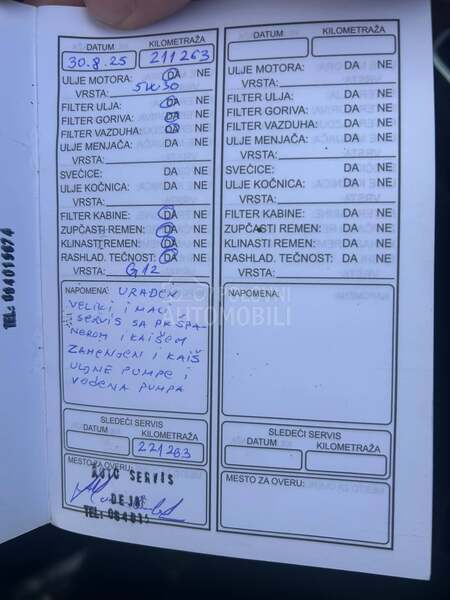 DATUM KILOMETRAŽA
30.8.25 211263
ULJE MOTORA: DA NE
VRSTA: 5W30
FILTER ULJA: DA NE
FILTER GORIVA: DA NE
FILTER VAZDUHA: DA NE
ULJE MENJAČA: DA NE
VRSTA:
SVEĆICE: DA NE
ULJE KOČNICA: DA NE
VRSTA:
FILTER KABINE: DA NE
ZUPČASTI REMEN: DA NE
KLINASTI REMEN: DA NE
RASHLAD. TEČNOST: DA NE
VRSTA: G12
NAPOMENA: URAĐEN
VELIKI I MALI
SERVIS SA PK ŠPA-
NEROM I KAIŠEM
ZAMENJEN I KAIŠ
ULJNE PUMPE I
VODENA PUMPA
SLEDEĆI SERVIS
DATUM KILOMETRAŽA
221263
MESTO ZA OVERU:
AUTO SERVIS
DEJA
TEL:
DATUM KILOMETRAŽA
ULJE MOTORA: DA NE
VRSTA:
FILTER ULJA: DA NE
FILTER GORIVA: DA NE
FILTER VAZDUHA: DA NE
ULJE MENJAČA: DA NE
VRSTA:
SVEĆICE: DA NE
ULJE KOČNICA: DA NE
VRSTA:
FILTER KABINE: DA NE
ZUPČASTI REMEN: DA NE
KLINASTI REMEN: DA NE
RASHLAD. TEČNOST: DA NE
VRSTA:
NAPOMENA:
SLEDEĆI SERVIS
DATUM KILOMETRAŽA
MESTO ZA OVERU:
AUTOMOBILI